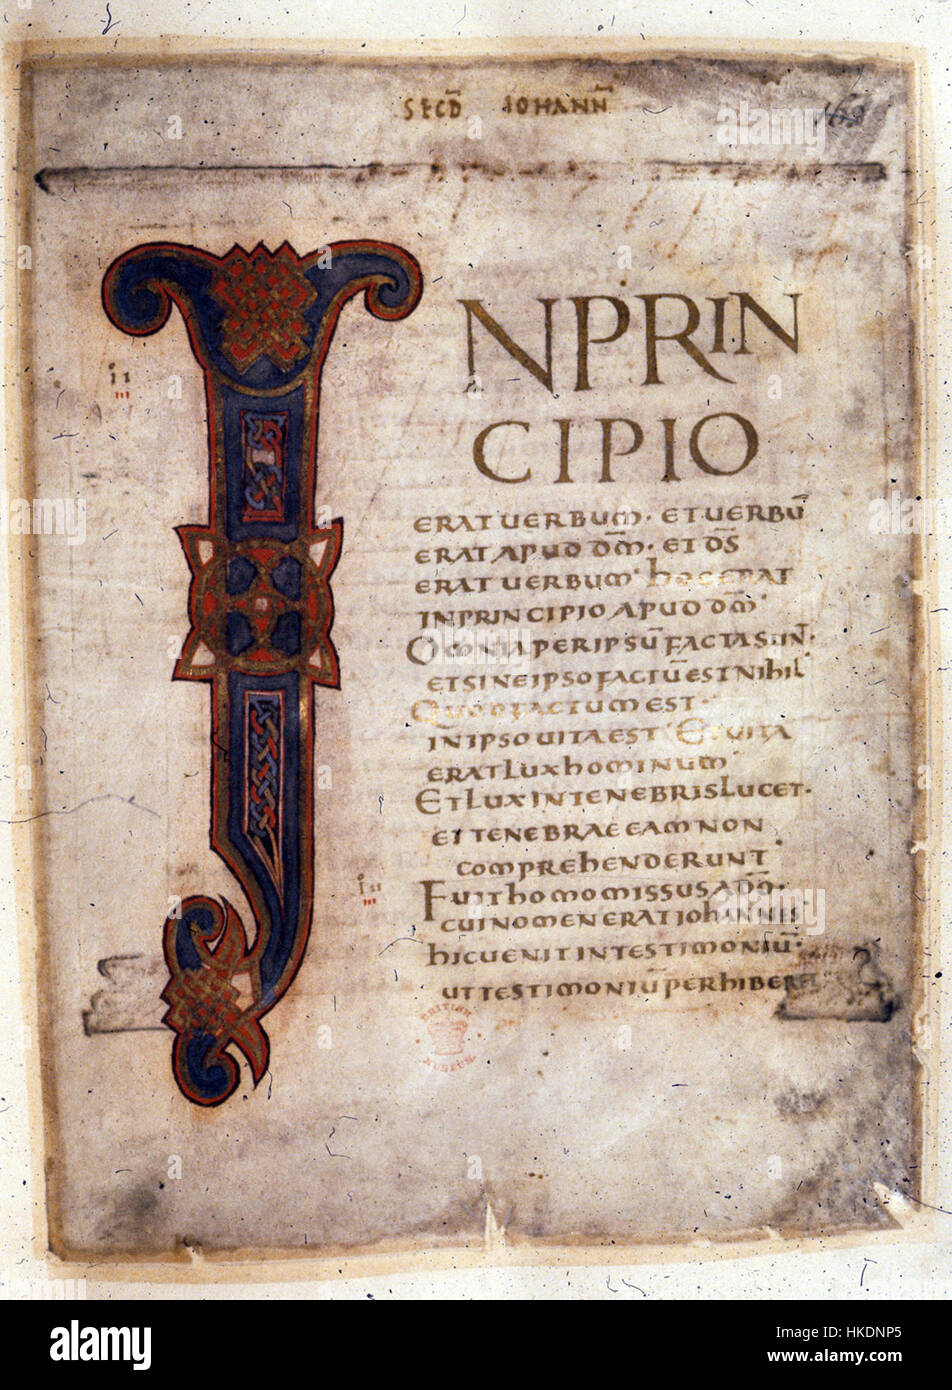 SECD̄ IOHANN̄
163
INPRIN
CIPIO
ERATUERBUM· ETUERBŪ
ERATAPUDDM̄· ETDS̄
ERATUERBUM· hOCERAT
INPRINCIPIOAPUDDM̄·
OMNIAPERIPSŪFACTASUN̄·
ETSINEIPSOFACTŪESTNIhIL
QUODFACTUMEST·
INIPSOUITAEST· ETUITA
ERATLUXhOMINUM
ETLUXINTENEBRISLUCET·
ETTENEBRAEEAMNON
COMPREhENDERUNT·
FUIThOMOMISSUSADŌ·
CUINOMENERATIOhANNES
hICUENITINTESTIMONIŪ·
UTTESTIMONIŪPERhIBERE
BRITISH
MUSEUM
a alamy
alamy stock photo
HKDNP5
www.alamy.com